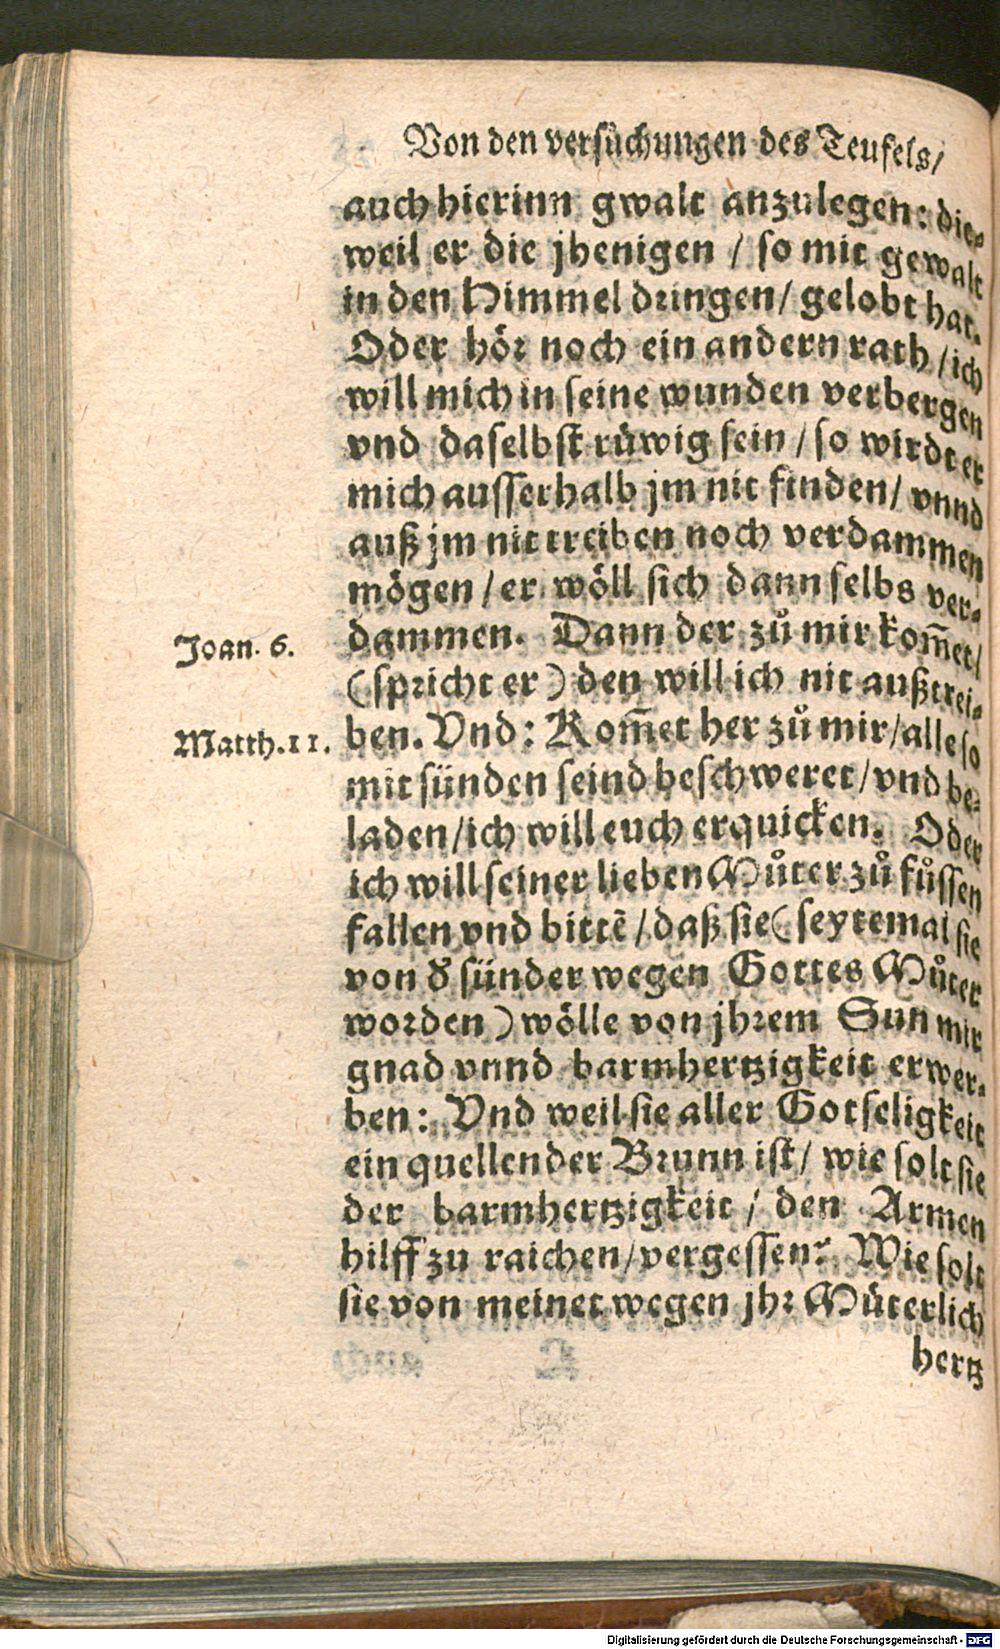 Von den versůchungen des Teufels/
auch hierinn gwalt anzulegen: die-
weil er die jhenigen / so mit gewalt
in den Himmel dringen/ gelobt hat.
Oder hör noch ein andern rath / ich
will mich in seine wunden verbergen
vnd daselbst rüwig sein / so wirdt er
mich ausserhalb jm nit finden/ vnnd
auß jm nit treiben noch verdammen
mögen / er wöll sich dann selbs ver-
Joan. 6.
dammen. Dann der zů mir kom̃et/
(spricht er) den will ich nit außtrei-
Matth. 11.
ben. Vnd: Kom̃et her zů mir/ alle so
mit sünden seind beschweret/ vnd be-
laden/ ich will euch erquicken. Oder
ich will seiner lieben Můter zů fůssen
fallen vnd bittẽ / daß sie (seytemal sie
von ď sünder wegen Gottes Můter
worden) wölle von jhrem Sun mir
gnad vnnd barmhertzigkeit erwer-
ben: Vnd weil sie aller Gotseligkeit
ein quellender Brunn ist/ wie solt sie
der barmhertzigkeit / den Armen
hilff zu raichen/ vergessen? Wie solt
sie von meinet wegen jhr Müterlich
hertz
Digitalisierung gefördert durch die Deutsche Forschungsgemeinschaft - DFG